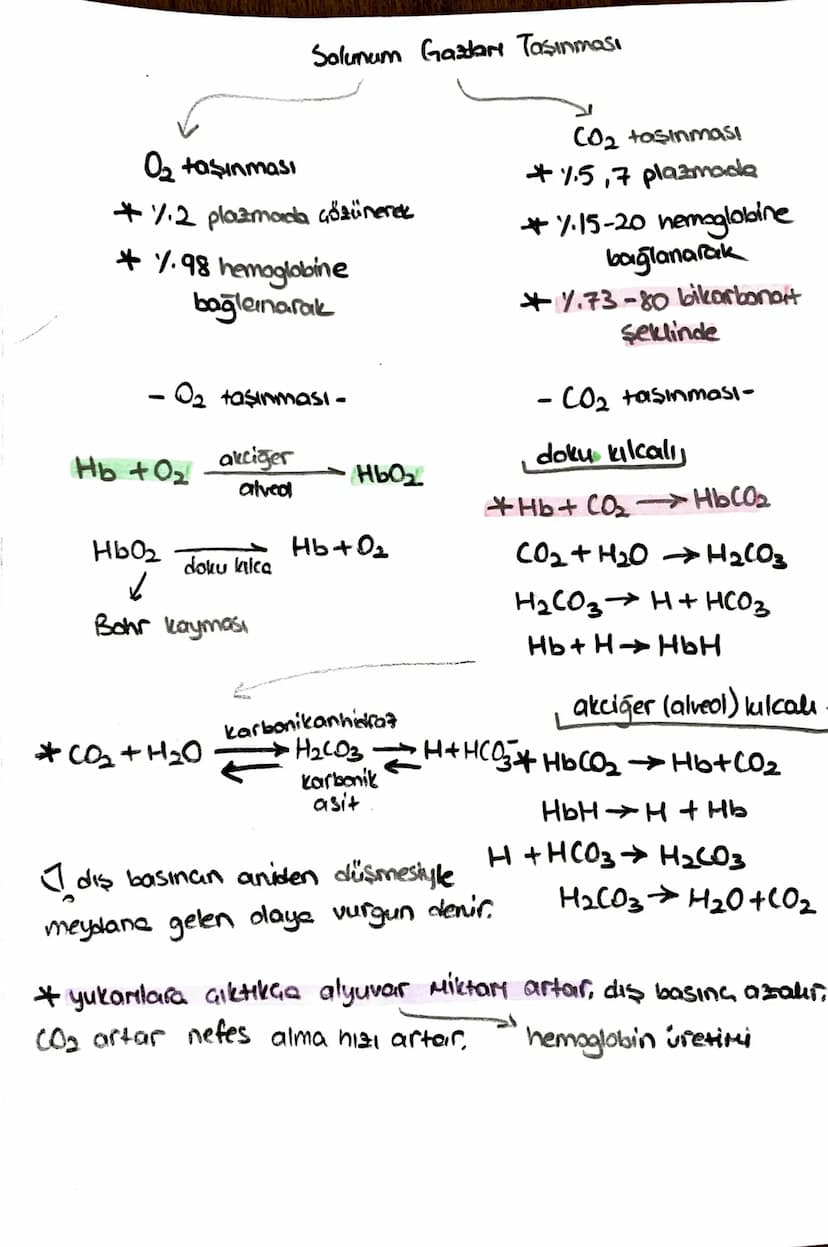 Solunum Gazları Taşınması
O₂ taşınması
* %.2 plazmada çözünerek
* %.98 hemoglobine
bağlanarak
CO₂ taşınması
* %5,7 plazmada
* %.15-20 hemoglobine
bağlanarak
* %.73-80 bikarbonat
şeklinde
- O₂ taşınması -
Hb + O₂ akciğer alveol → HbO₂
HbO₂ → doku kılca Hb + O₂
Bohr kayması
- CO₂ taşınması -
doku kılcalı
* Hb + CO₂ → HbCO₂
CO₂ + H₂O → H₂CO₃
H₂CO₃ → H + HCO₃
Hb + H → HbH
karbonikanhidraz
* CO₂ + H₂O ⇄ H₂CO₃ ⇄ H + HCO₃⁻
karbonik
asit
akciğer (alveol) kılcalı
* HbCO₂ → Hb + CO₂
HbH → H + Hb
H + HCO₃ → H₂CO₃
H₂CO₃ → H₂O + CO₂
dış basıncın aniden düşmesiyle
meydana gelen olaya vurgun denir.
* yukarılara çıktıkça alyuvar miktarı artar, dış basınç azalır,
CO₂ artar nefes alma hızı artar. hemoglobin üretimi